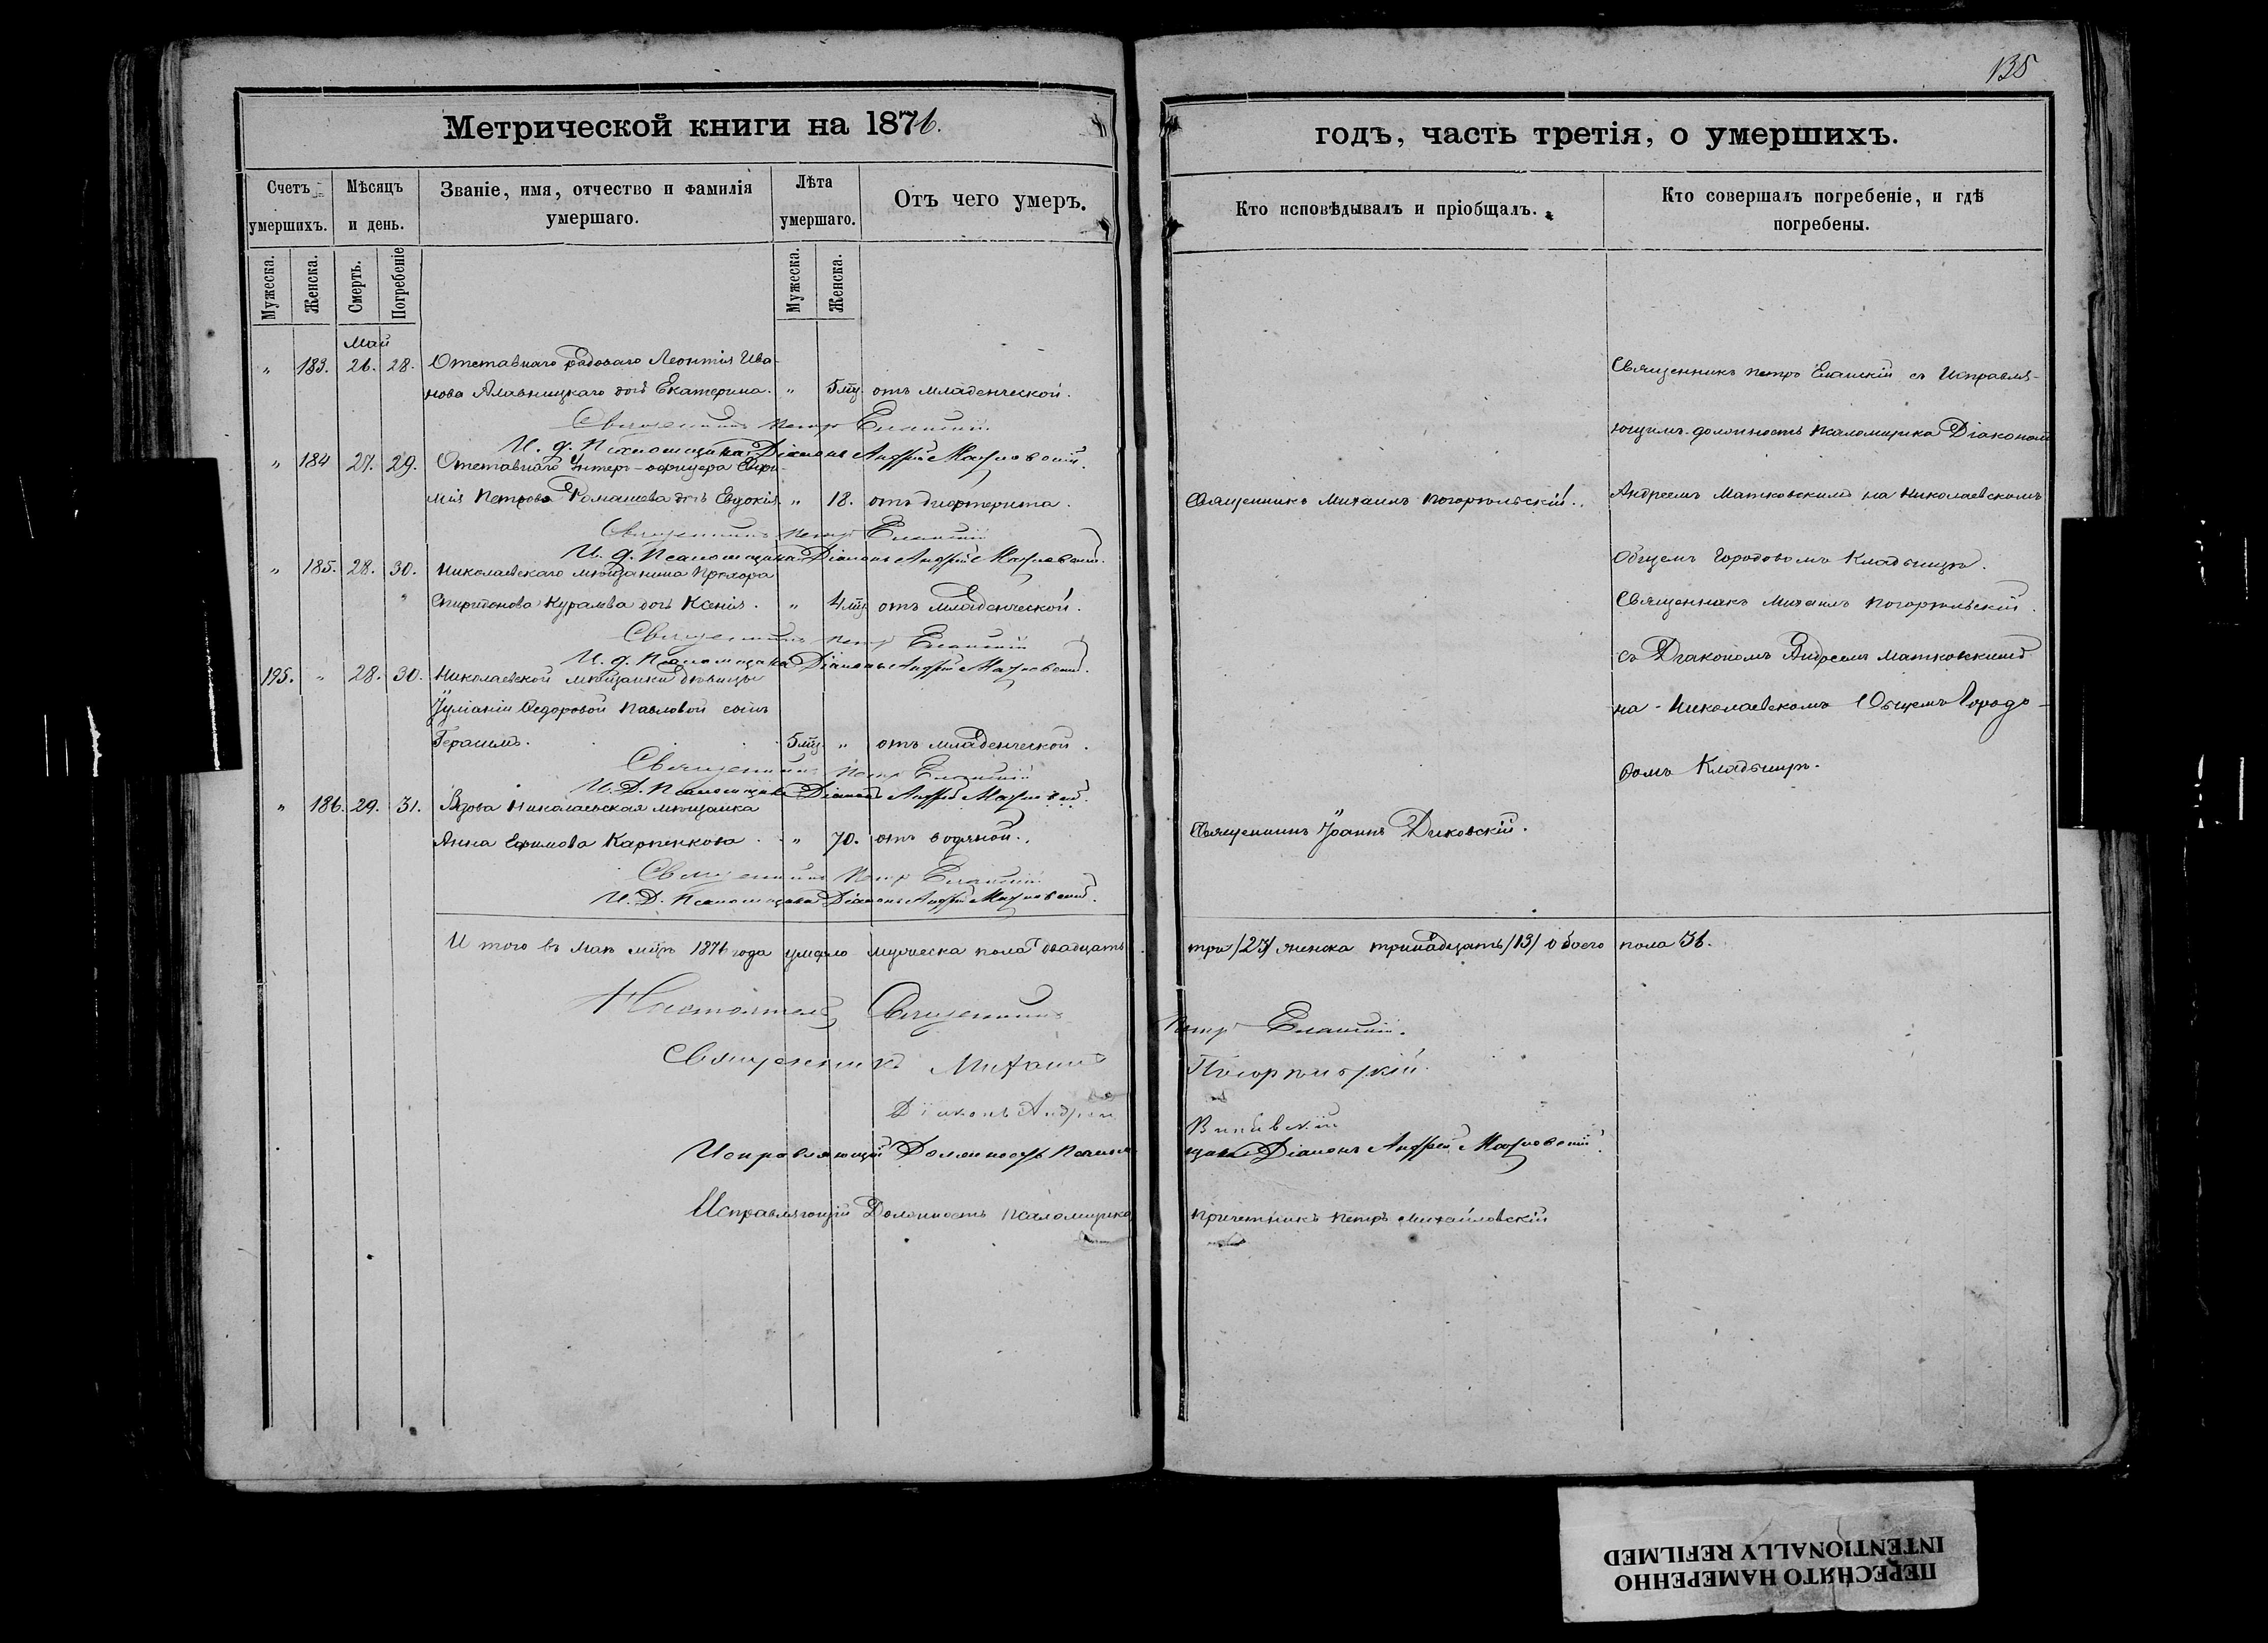 135
Метрической книги на 1876.
годъ, часть третія, о умершихъ.
Счетъ умершихъ.
Мѣсяцъ и день.
Званіе, имя, отчество и фамилія умершаго.
Лѣта умершаго.
Отъ чего умеръ.
Кто исповѣдывалъ и пріобщалъ.
Кто совершалъ погребеніе, и гдѣ погребены.
Мужеска.
Женска.
Смерть.
Погребеніе
Мужеска.
Женска.
Май
" 183. 26. 28. Отставнаго рядоваго Леонтія Ива-
нова дочь Екатерина. " 5 мц. отъ младенческой.
Священникъ Петръ
И. д. Псаломщика Діаконъ Андрей
" 184 27. 29. Отставнаго Унтеръ-офицера
Петрова Ромашева дочь Евдокія " 18. отъ дифтерита.
Священникъ Петръ
И. д. Псаломщика Діаконъ Андрей
" 185. 28. 30. Николаевскаго мѣщанина Прохора
Спиридонова Куралева дочь Ксенія. " 4 мц. отъ младенческой.
Священникъ Петръ
И. д. Псаломщика Діаконъ Андрей
195. " 28. 30. Николаевской мѣщанки дѣвицы
Іуліаніи Ѳедоровой Павловой сынъ
Герасимъ. 5 мц. " отъ младенческой.
Священникъ Петръ
И. Д. Псаломщика Діаконъ Андрей
" 186. 29. 31. Вдова Николаевская мѣщанка
Анна Ефимова Карпенкова " 70. отъ водяной.
Священникъ Петръ
И. Д. Псаломщика Діаконъ Андрей
Священникъ Михаилъ Погорѣльскій.
Священникъ Іоаннъ Диковскій.
Священникъ Петръ съ Исправля-
ющимъ должность Псаломщика Діакономъ
Андреемъ Матковскимъ на Николаевскомъ
Общемъ Городовомъ Кладбищѣ.
Священникъ Михаилъ Погорѣльскій
съ Діакономъ Андреемъ Матковскимъ
на Николаевскомъ Общемъ Городо-
вомъ Кладбищѣ.
И того въ Маѣ мцѣ 1876 года умерло мужеска пола двадцать три /23/ женска тринадцать /13/ обоего пола 36.
Настоятель Священникъ Петръ
Священникъ Михаилъ Погорѣльскій
Діаконъ Андрей
Исправляющій Должность Псаломщика Діаконъ Андрей
Исправляющій Должность Псаломщика Причетникъ Петръ Михайловскій
ПЕРЕСНЯТО НАМЕРЕННО
INTENTIONALLY REFILMED